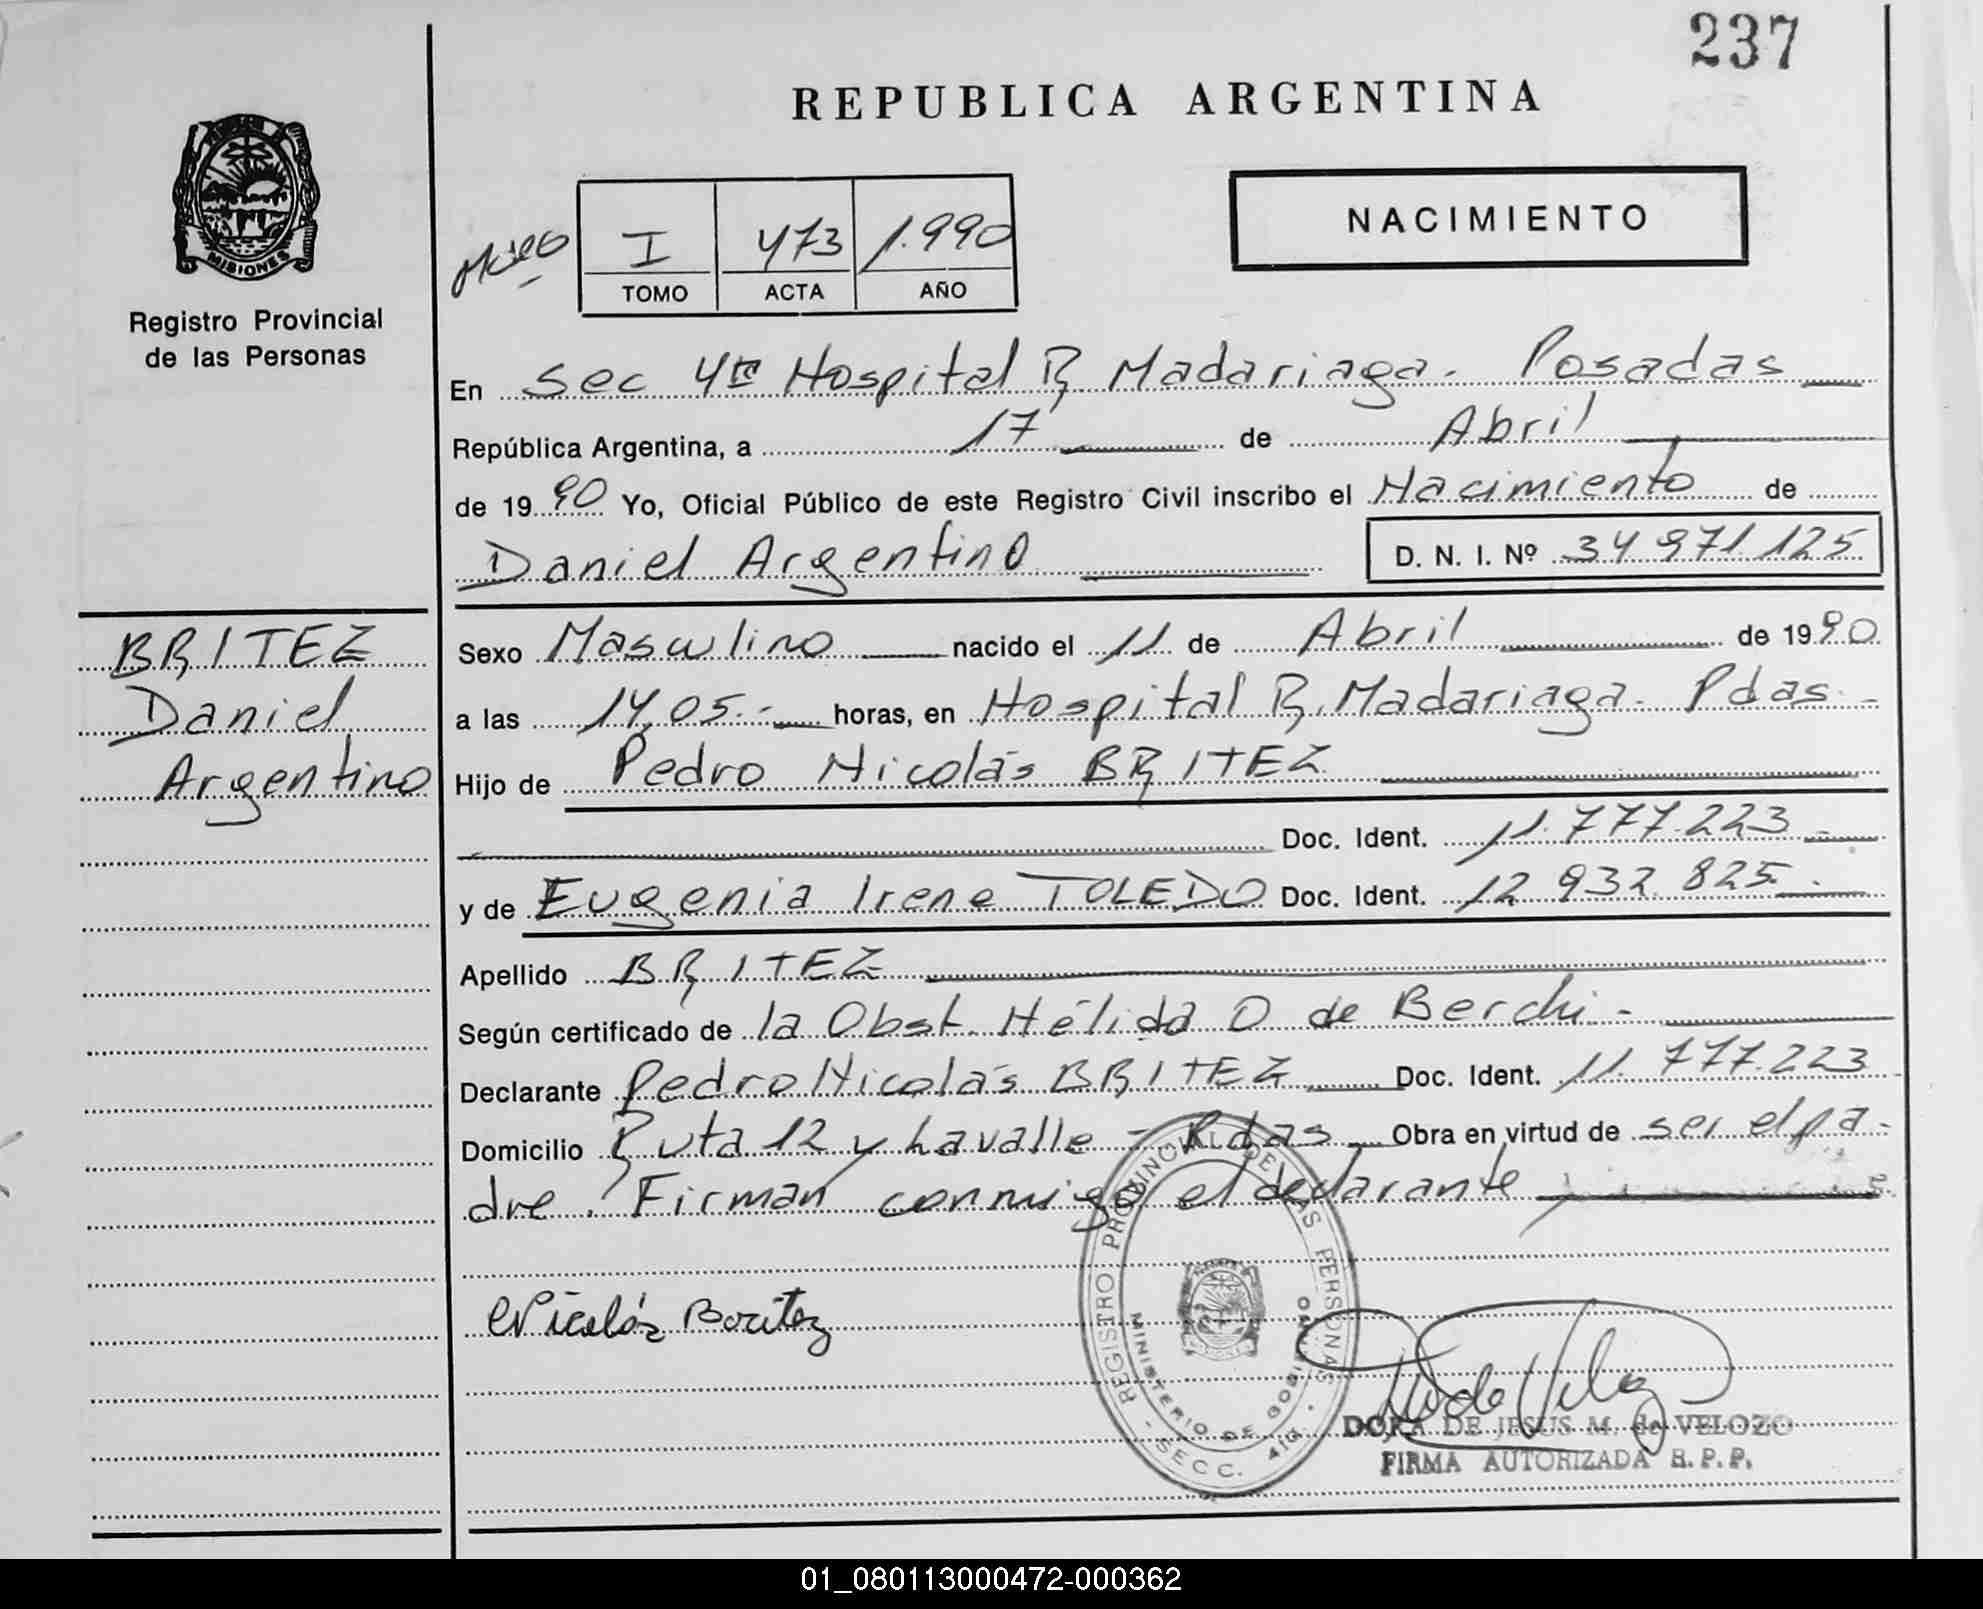 237
REPUBLICA ARGENTINA
MISIONES
Registro Provincial
de las Personas
I 473 1.990
TOMO ACTA AÑO
NACIMIENTO
En Sec 4ta Hospital R. Madariaga. Posadas
República Argentina, a 17 de Abril
de 1990 Yo, Oficial Público de este Registro Civil inscribo el Nacimiento de
Daniel Argentino D. N. I. Nº 34 971.125
BRITEZ
Daniel
Argentino
Sexo Masculino nacido el 11 de Abril de 1990
a las 14,05.- horas, en Hospital R. Madariaga. Pdas.-
Hijo de Pedro Nicolás BRITEZ
Doc. Ident. 11.777.223
y de Eugenia Irene TOLEDO Doc. Ident. 12 932.825.-
Apellido BRITEZ
Según certificado de la Obst. Hélida O de Berchi.-
Declarante Pedro Nicolás BRITEZ Doc. Ident. 11.777.223
Domicilio Ruta 12 y Lavalle - Pdas Obra en virtud de ser el pa-
dre. Firman conmigo el declarante
REGISTRO PROVINCIAL DE LAS PERSONAS
MINISTERIO DE GOBIERNO
- SECC. 4ta. -
Nicolás Boritez
DORA DE JESUS M. de VELOZO
FIRMA AUTORIZADA R.P.P.
01_080113000472-000362